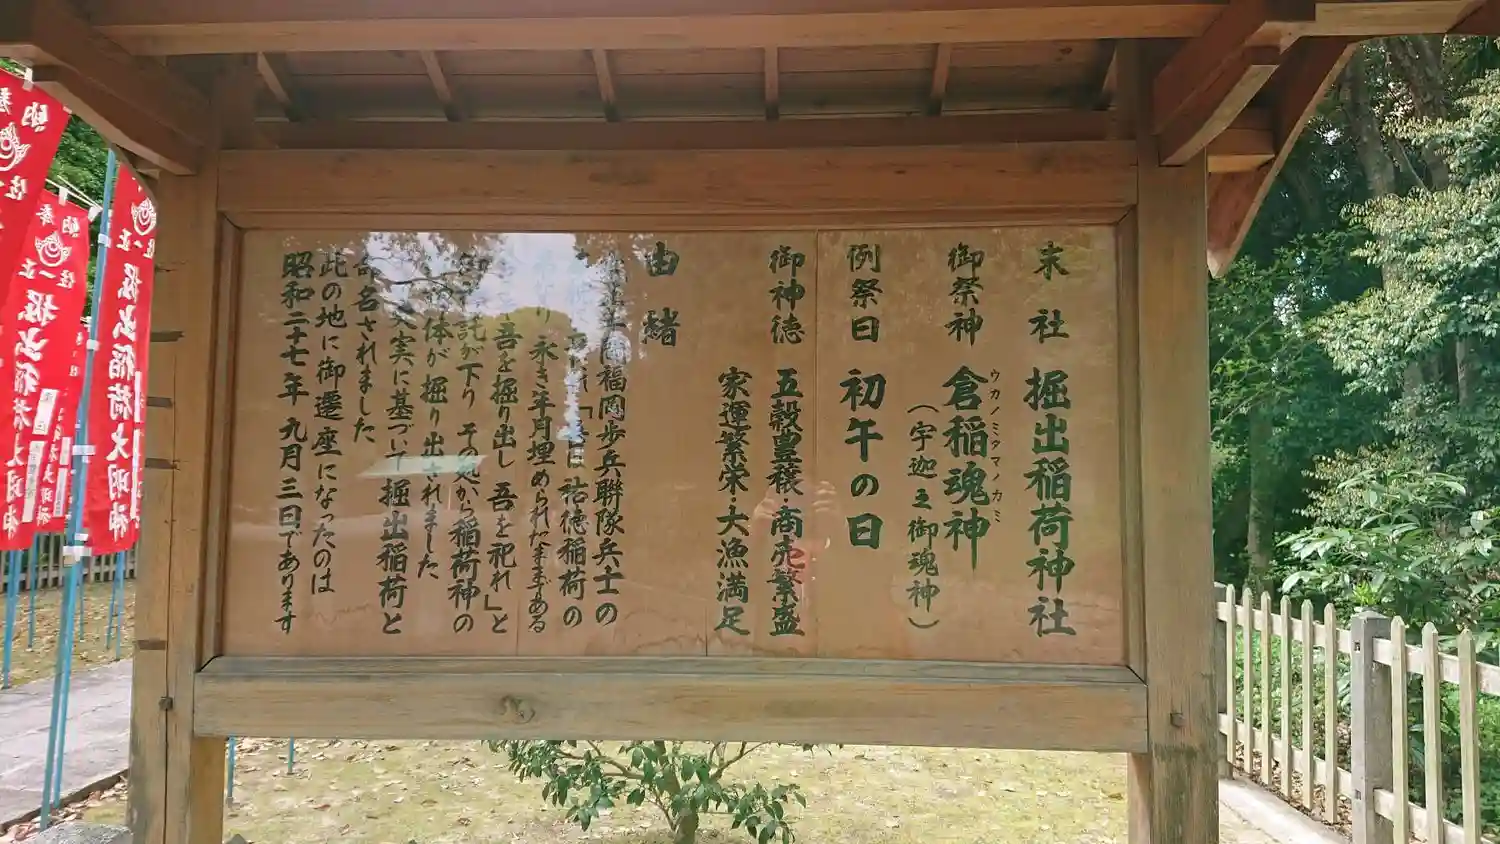 末社 掘出稲荷神社
御祭神 倉稲魂神
ウカノミタマノカミ
(宇迦之御魂神)
例祭日 初午の日
御神徳 五穀豊穣・商売繁盛
家運繁栄・大漁満足
由緒
福岡歩兵聯隊兵士の
祐徳稲荷の
り 永き年月埋められたままである
吾を掘り出し 吾を祀れ」と
託が下り その処から稲荷神の
体が掘り出されました
実に基づいて掘出稲荷と
命名されました
此の地に御遷座になったのは
昭和二十七年 九月三日であります
奉納
正一位
掘出稲荷大明神
奉納
正一位
掘出稲荷大明神